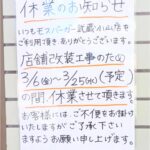 休業のお知らせ
いつもモスバーガー武蔵小山店を
ご利用頂き、ありがとうございます。
店舗改装工事のため
3/6(金)〜3/25(水)(予定)
の間、休業させて頂きます。
お客様には、ご不便をお掛け
いたしますがご了承下さい
ますようお願い申し上げます。